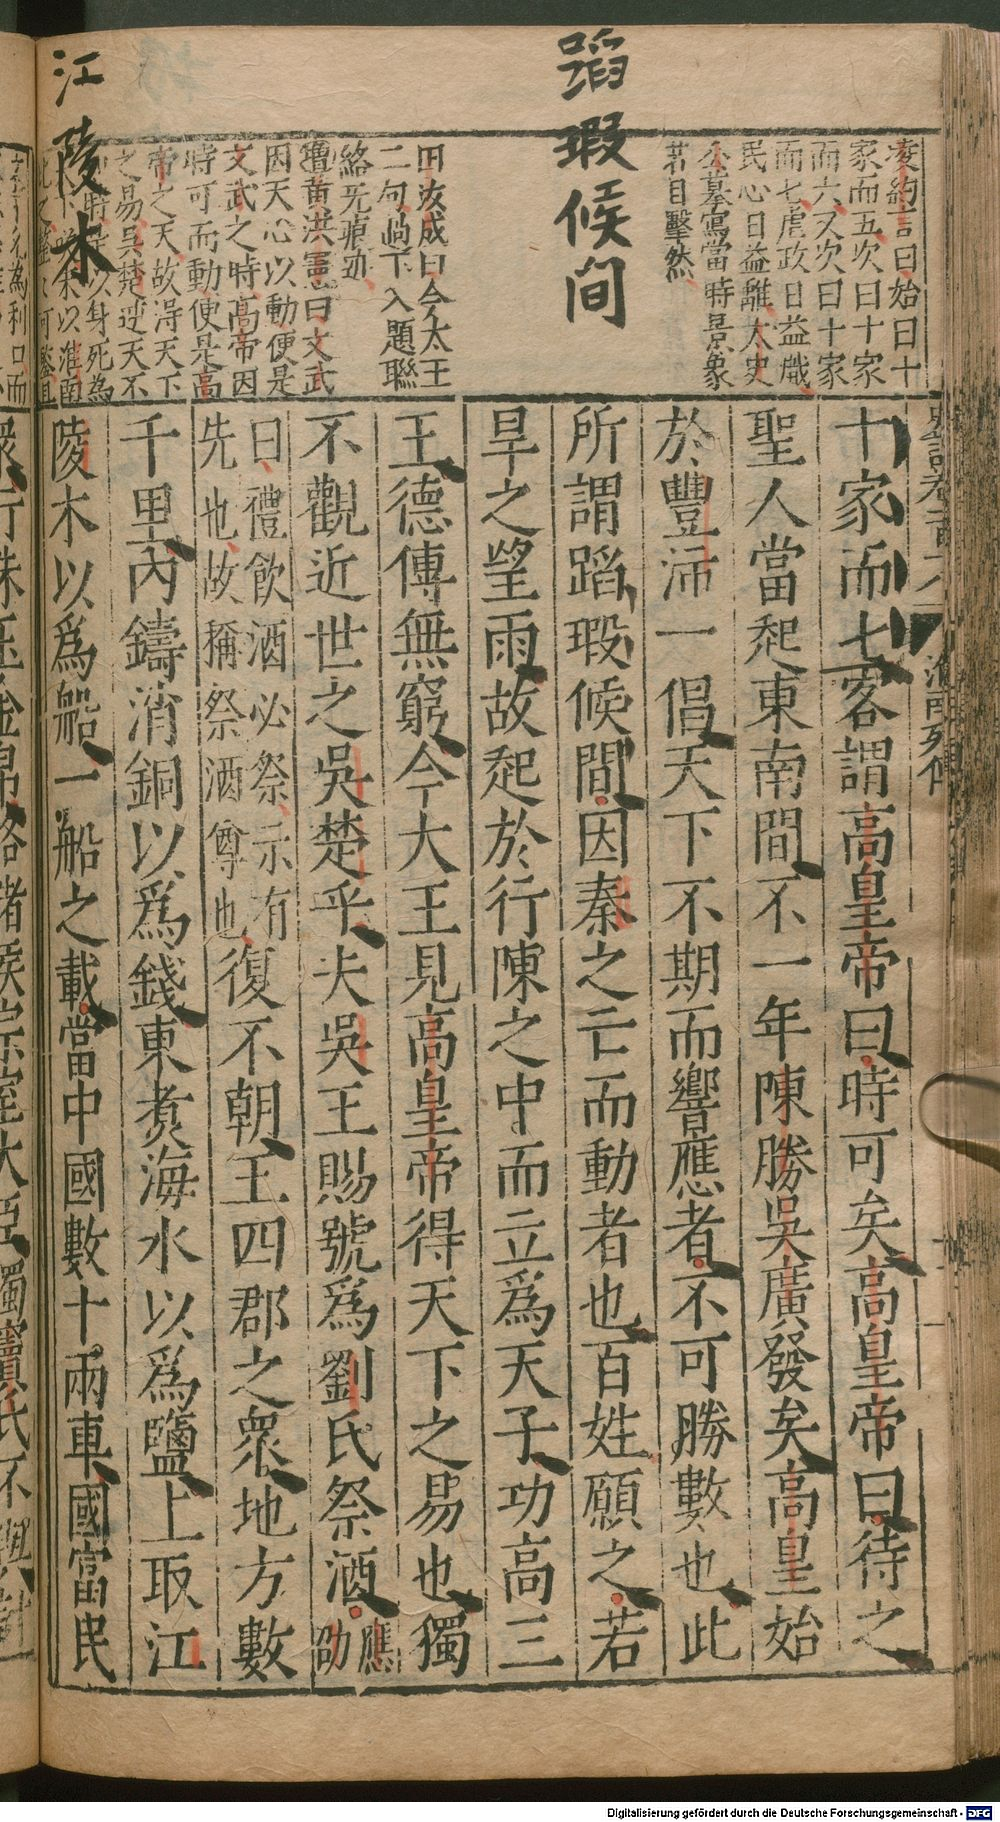 蹈瑕候间
江陵木
凌約言曰始曰十
家而五次曰十家
而六又次曰十家
而七虐政日益熾
民心日益離太史
公摹寫當時景象
若目擊然
田汝成曰今太王
二句過下入題聯
絡无痕
增黄洪憲曰文武
因天心以動便是
文武之時高帝因
時可而動便是高
帝之天故得天下
之易吳楚逆天不
以身死為
以淮南
十家而七客謂高皇帝曰時可矣高皇帝曰待之
聖人當起東南間不一年陳勝吳廣發矣高皇始
於豐沛一倡天下不期而響應者不可勝數也此
所謂蹈瑕候間因秦之亡而動者也百姓願之若
旱之望雨故起於行陳之中而立爲天子功高三
王德傳無窮今大王見高皇帝得天下之易也獨
不觀近世之吳楚乎夫吳王賜號爲劉氏祭酒應劭
曰禮飲酒必祭示有
先也故稱祭酒尊也復不朝王四郡之衆地方數
千里內鑄消銅以爲錢東煮海水以爲鹽上取江
陵木以爲船一船之載當中國數十兩車國富民
行珠玉金帛賂諸侯宗室大臣獨竇氏不與計
Digitalisierung gefördert durch die Deutsche Forschungsgemeinschaft - DFG